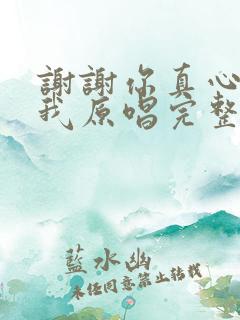 謝謝你真心
我原唱完整
藍水幽
未经同意禁止转载